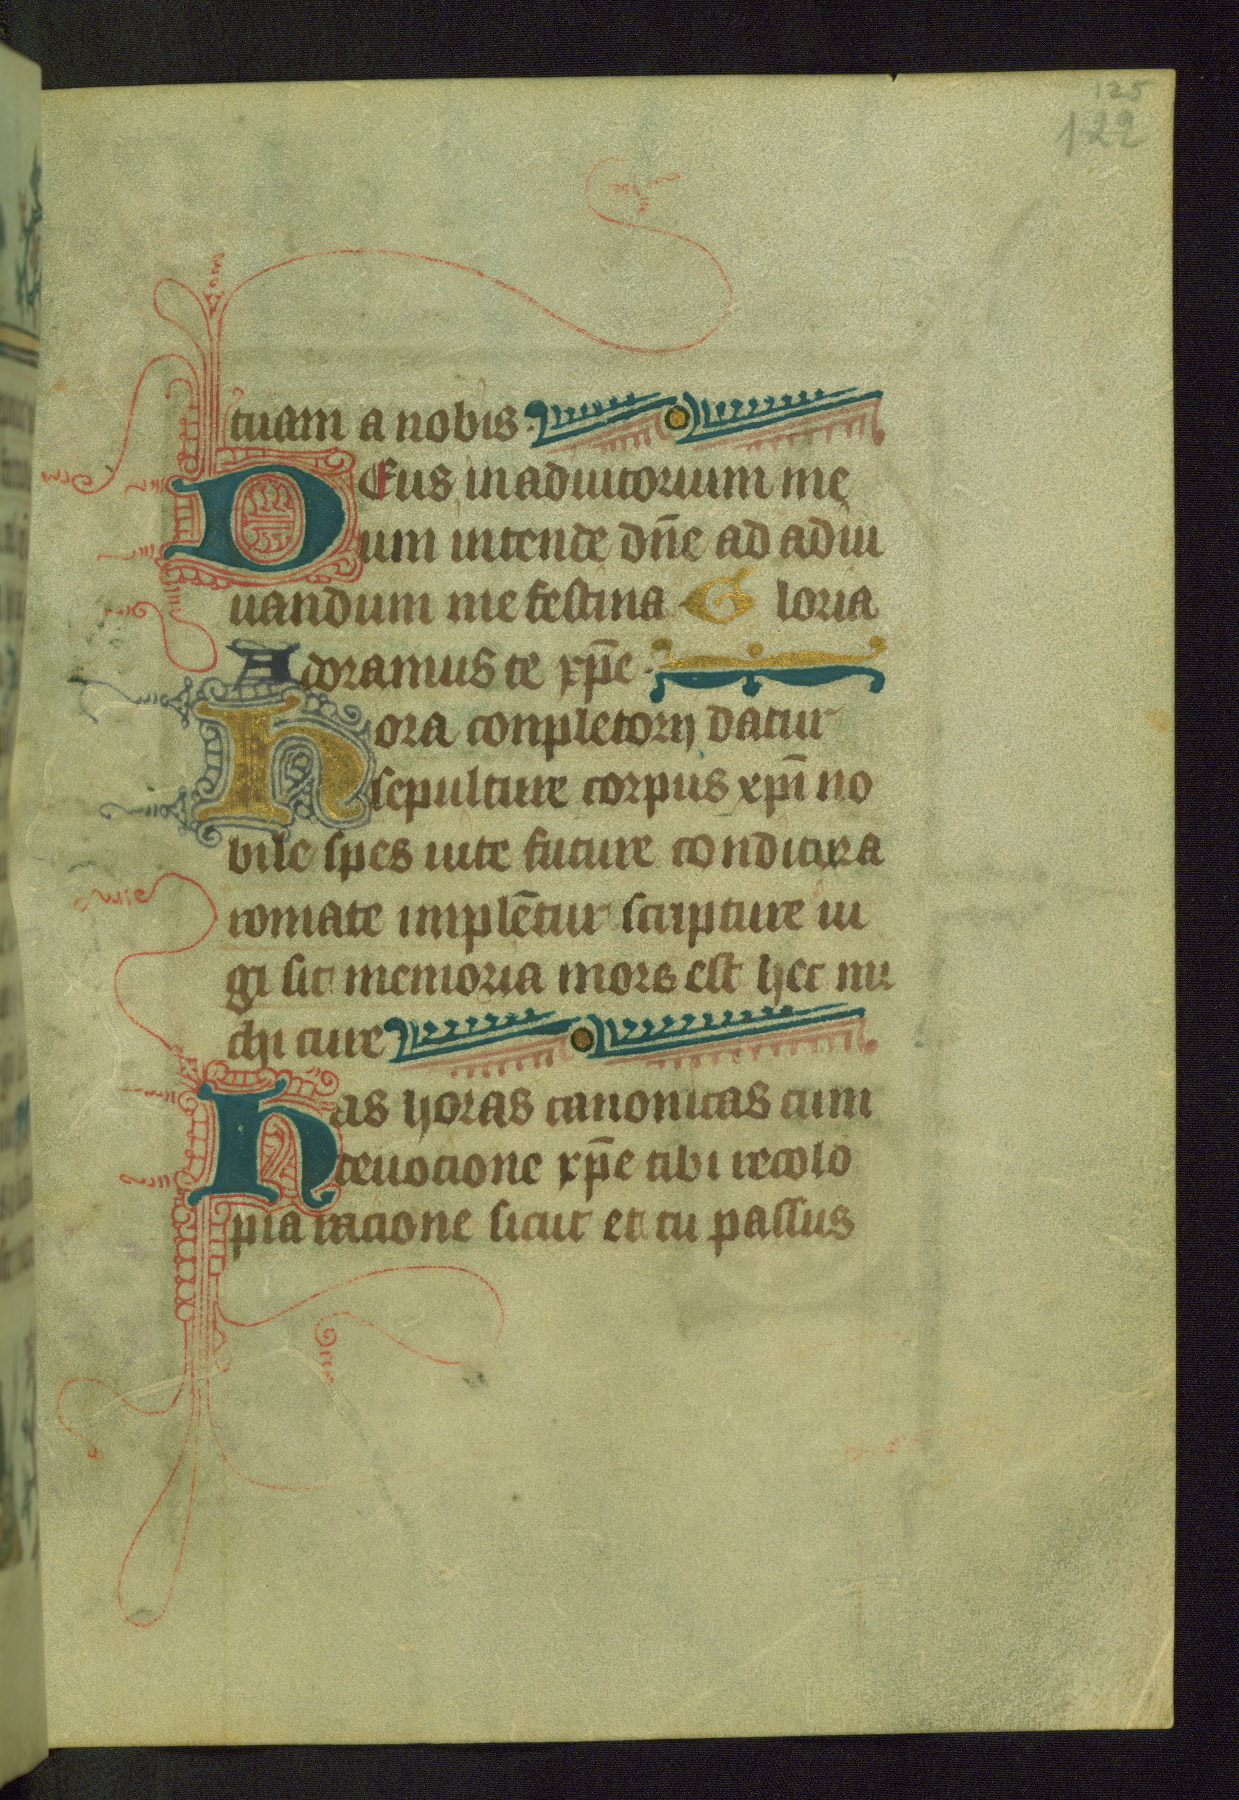 125
122
tuam a nobis
Deus in adiutorium me
um intende dn̄e ad adiu
uandum me festina Gloria
Adoramus te xp̄e
hora conpletorij datur
sepulture corpus xp̄i no
bile spes uite future conditura
romate implēt̄ur scripture iu
gi sit memoria mors est hec mi
chi cure
has horas canonicas cum
deuocione xp̄e tibi recolo
pia racione sicut et tu passus